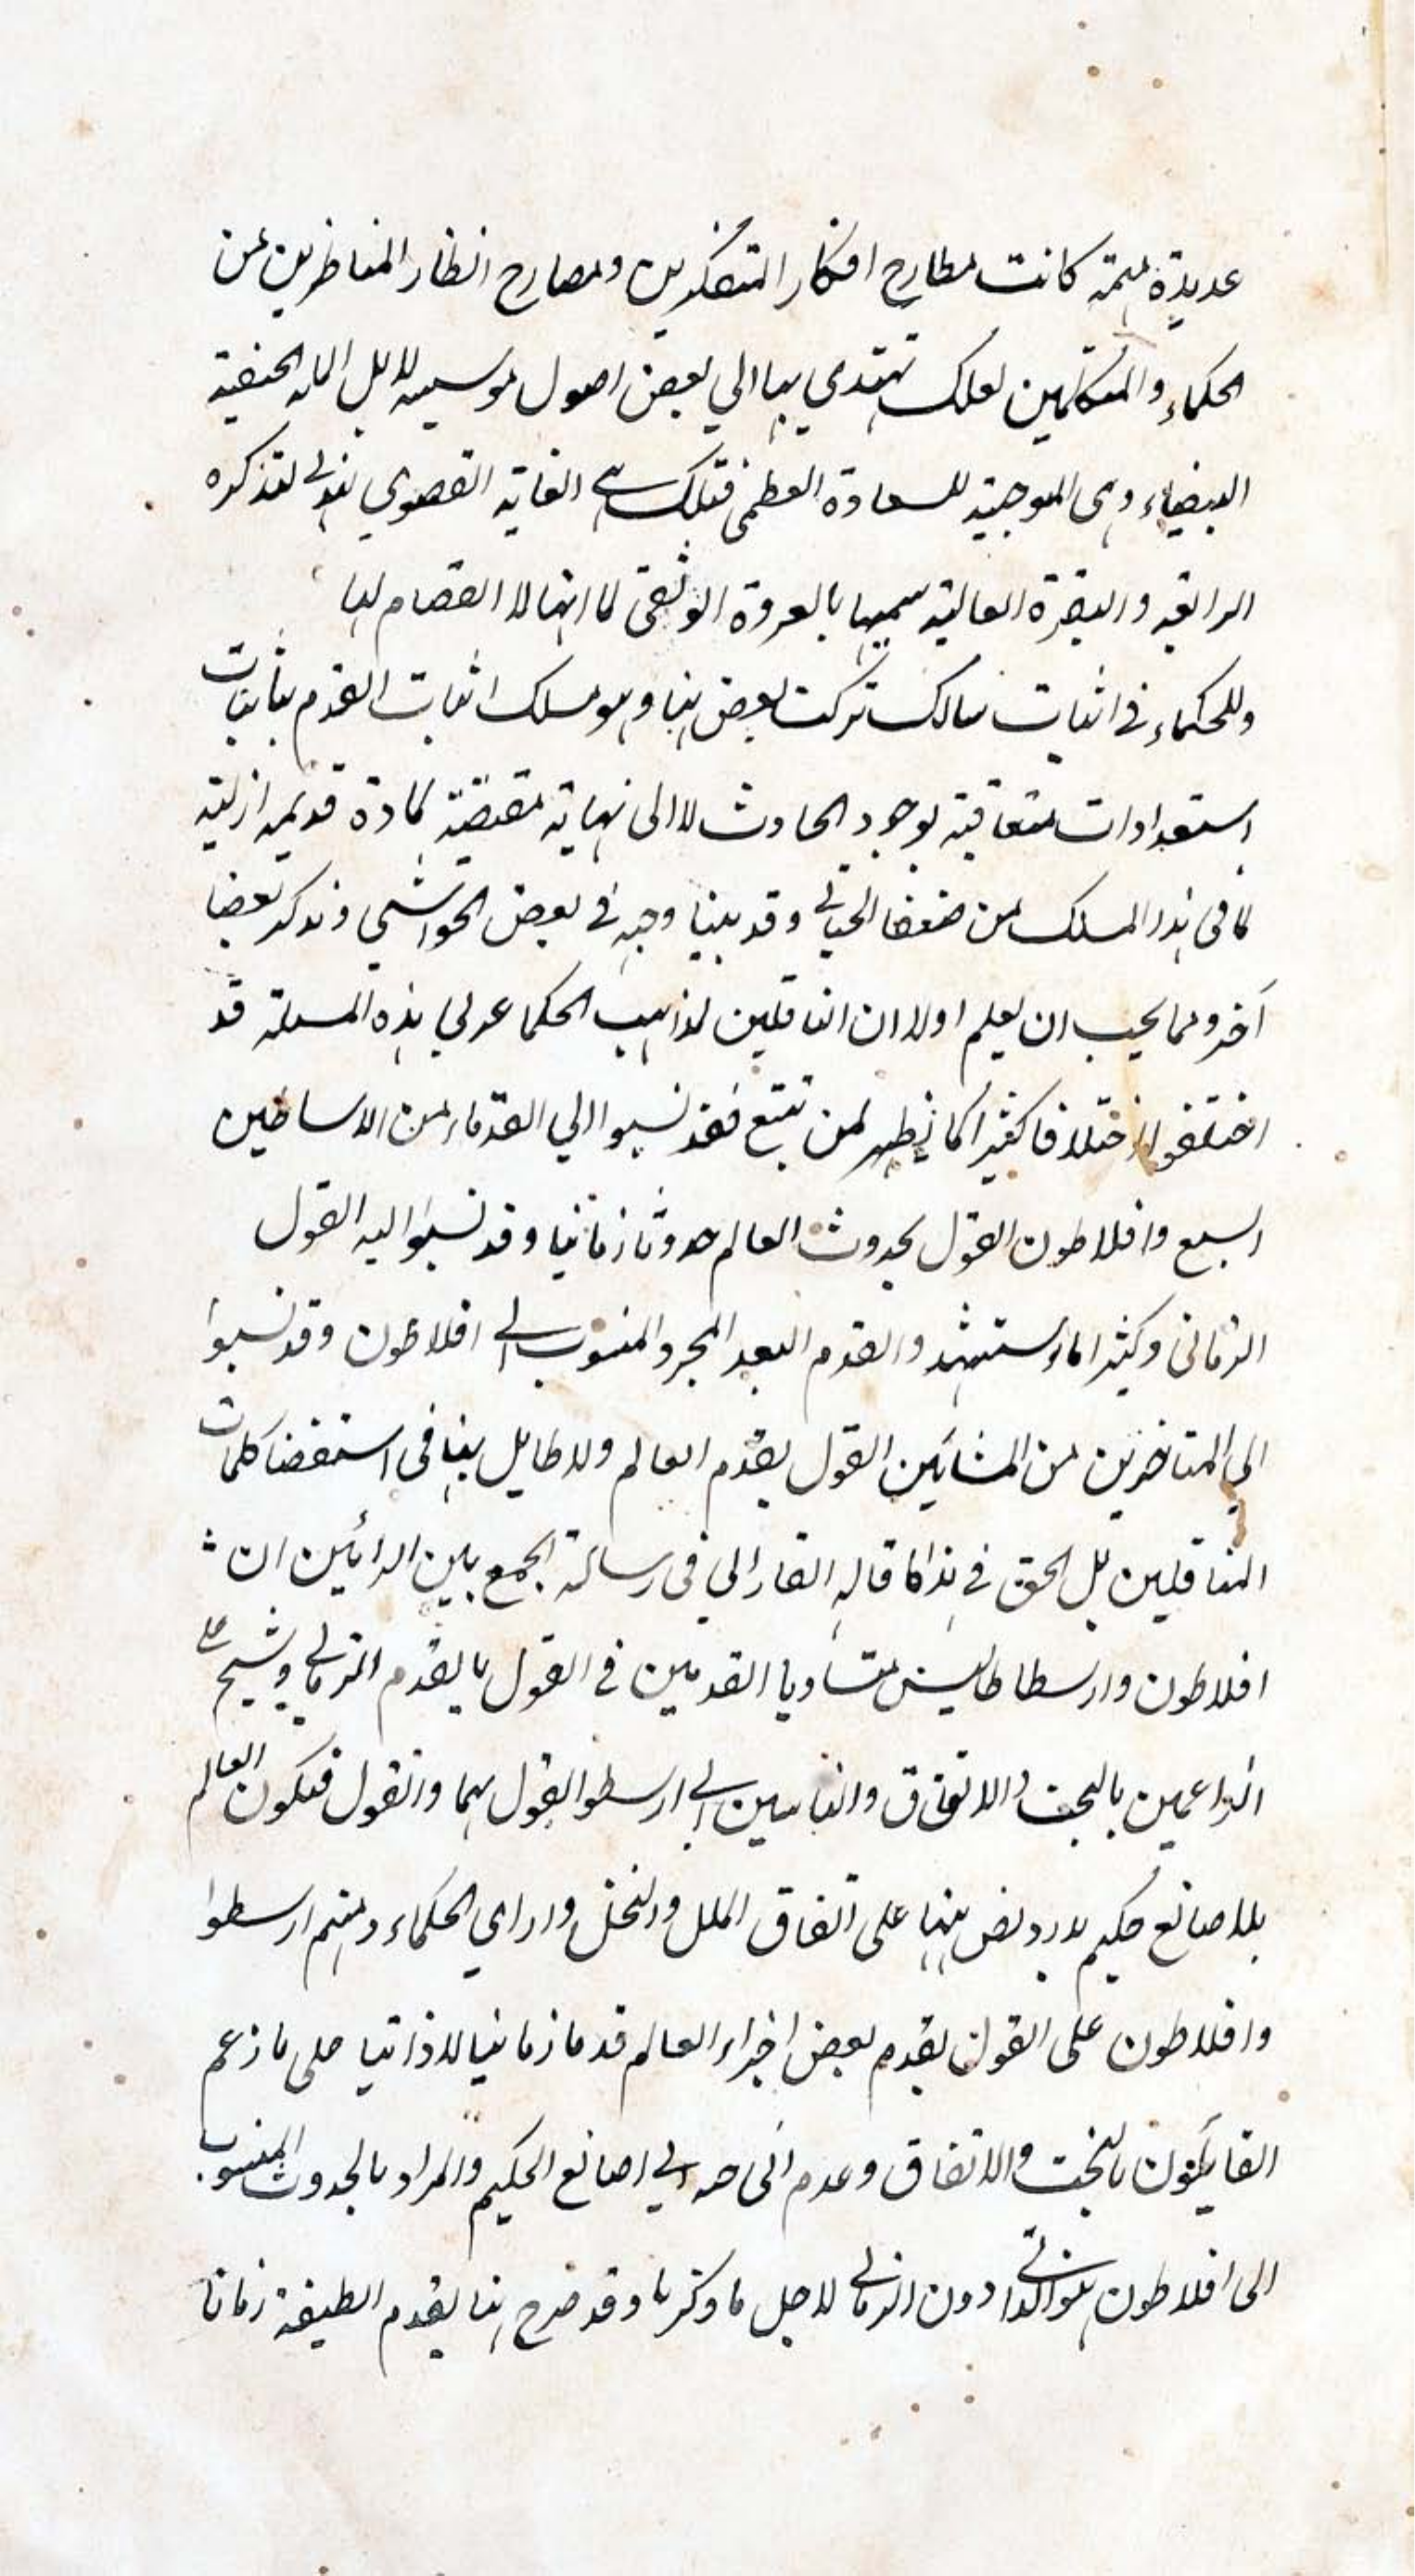 عديدة مهمة كانت مطارح افكار المتفكرين ومصارح انظار المناظرين من
الحكماء والمتكلمين لعلك تهتدي بها الي بعض اصول موسسه لاهل المله الحنفية
البيضاء وهى الموجبة للسعادة العظمى فتلك هى الغاية القصوي فهذه لتذكره
الرائقه و العالية سميها بالعروة الوثقى لما انها لا انفصام لها
وللحكماء فى اثبات مسالك تركت بعض منها وهو مسلك اثبات القدم باثبات
استعدادات متعاقبة لوجود الحادث لا الى نهاية مقتضية لمادة قديمه ازلية
لما فى هذا المسلك من وقد بينا وجهه فى بعض الحواشي ونذكر بعضا
آخر ومما يجب ان يعلم اولا ان الناقلين لمذاهب الحكما هذه المسئلة قد
اختلفوا اختلافا كثيرا كما يظهر لمن تتبع فقد نسبوا الي القدماء من الاساطين
السبع وافلاطون القول بحدوث العالم حدوثا زمانيا وقد نسبوا اليه القول
الزمانى وكثيرا ما والقدم البعد المجرد المنسوب الى افلاطون وقد نسبوا
الي المتاخرين من المشائين القول بقدم العالم ولا طايل هنا فى كلمات
الناقلين بل الحق فى هذا كما قاله الفارابي فى رسالة الجمع بين الرائين ان
افلاطون وارسطاطاليس متساويا القدمين فى القول بالقدم الزماني وشيخ على
الزاعمين بالبخت والاتفاق والناسبين الى ارسطو القول بهما والقول فيكون العالم
بلا صانع حكيم على اتفاق الملل والنحل واراي الحكماء ومنهم ارسطوا
وافلاطون على القول بقدم بعض اجزاء العالم قدما زمانيا لا ذاتيا على ما زعم
القايلون بالبخت والاتفاق وعدم الى الصانع الحكيم والمراد بالحدوث المنسوب
الى افلاطون هو الذاتى دون الزماني لاجل ما ذكرنا وقد صرح هنا بقدم زمانا